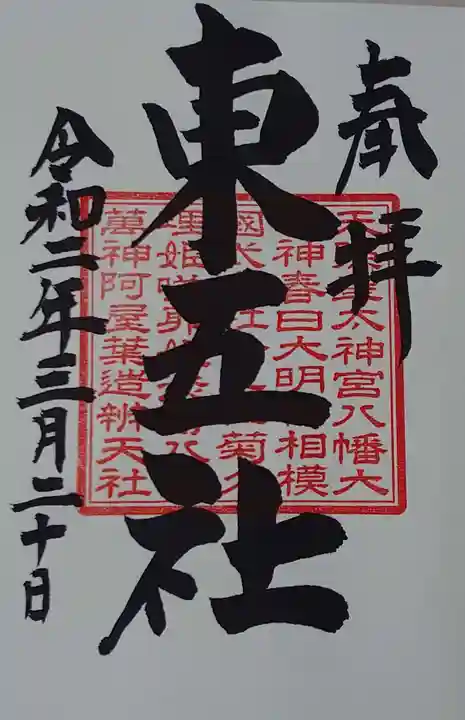 奉拝
東五社
令和二年三月二十日
天照皇太神宮八幡大
神春日大明 相模
國
菊
萬神阿屋葉造辨天社